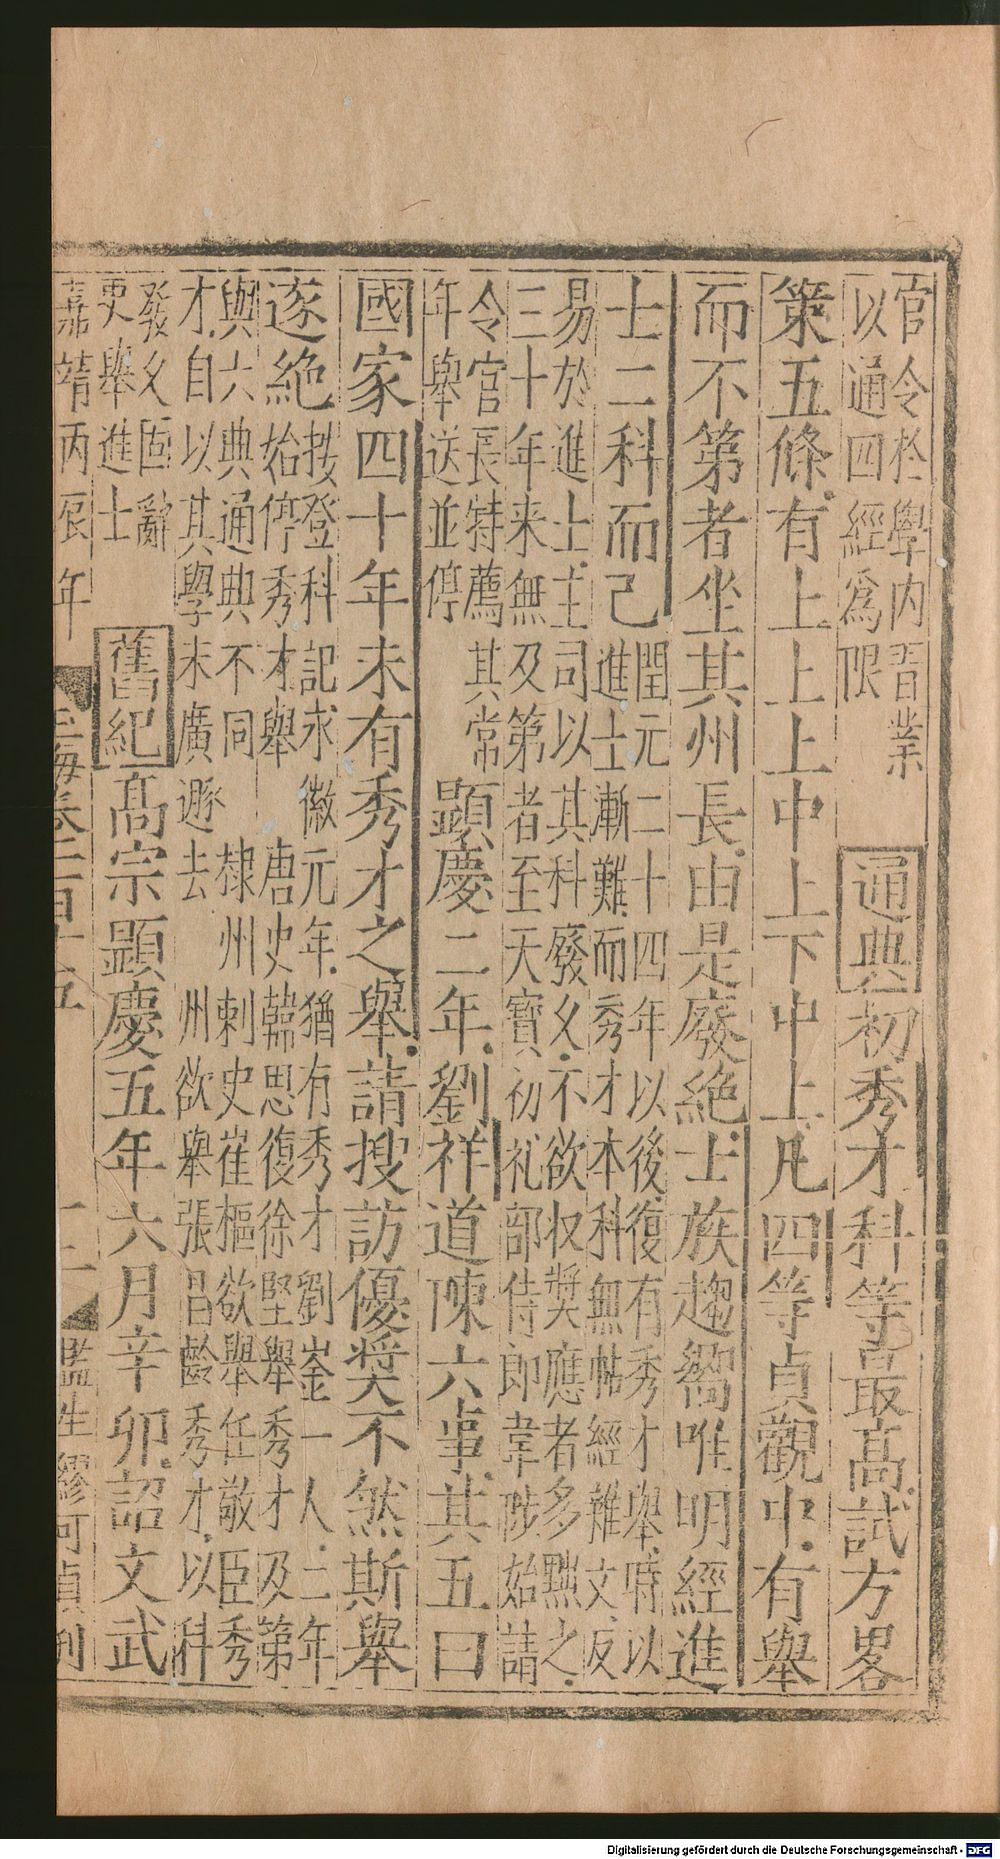 官令於學内習業
以通四經爲限
通典初秀才科等最高試方畧
策五條有上上上中上下中上凡四等貞觀中有舉
而不第者坐其州長由是廢絶士族趨嚮唯明經進
士二科而已
開元二十四年以後復有秀才舉時以
進士漸難而秀才本科無帖經雜文反
易於進士主司以其科廢久不欲収奬應者多黜之
三十年来無及第者至天寶初礼部侍郎韋陟始請
令官長特薦其常
年舉送並停
顯慶二年劉祥道陳六事其五曰
國家四十年未有秀才之舉請搜訪優奬不然斯舉
遂絶
按登科記永徽元年猶有秀才劉崟一人二年
始停秀才舉 唐史韓思復徐堅舉秀才及第
與六典通典不同 棣州刺史崔樞欲舉任敬臣秀
才自以其學未廣遯去 州欲舉張昌齡秀才以科
發久固辭
更舉進士
舊紀高宗顯慶五年六月辛卯詔文武
嘉靖丙辰年 玉海卷一百十五 十二 監生繆可貞刊
Digitalisierung gefördert durch die Deutsche Forschungsgemeinschaft - DFG